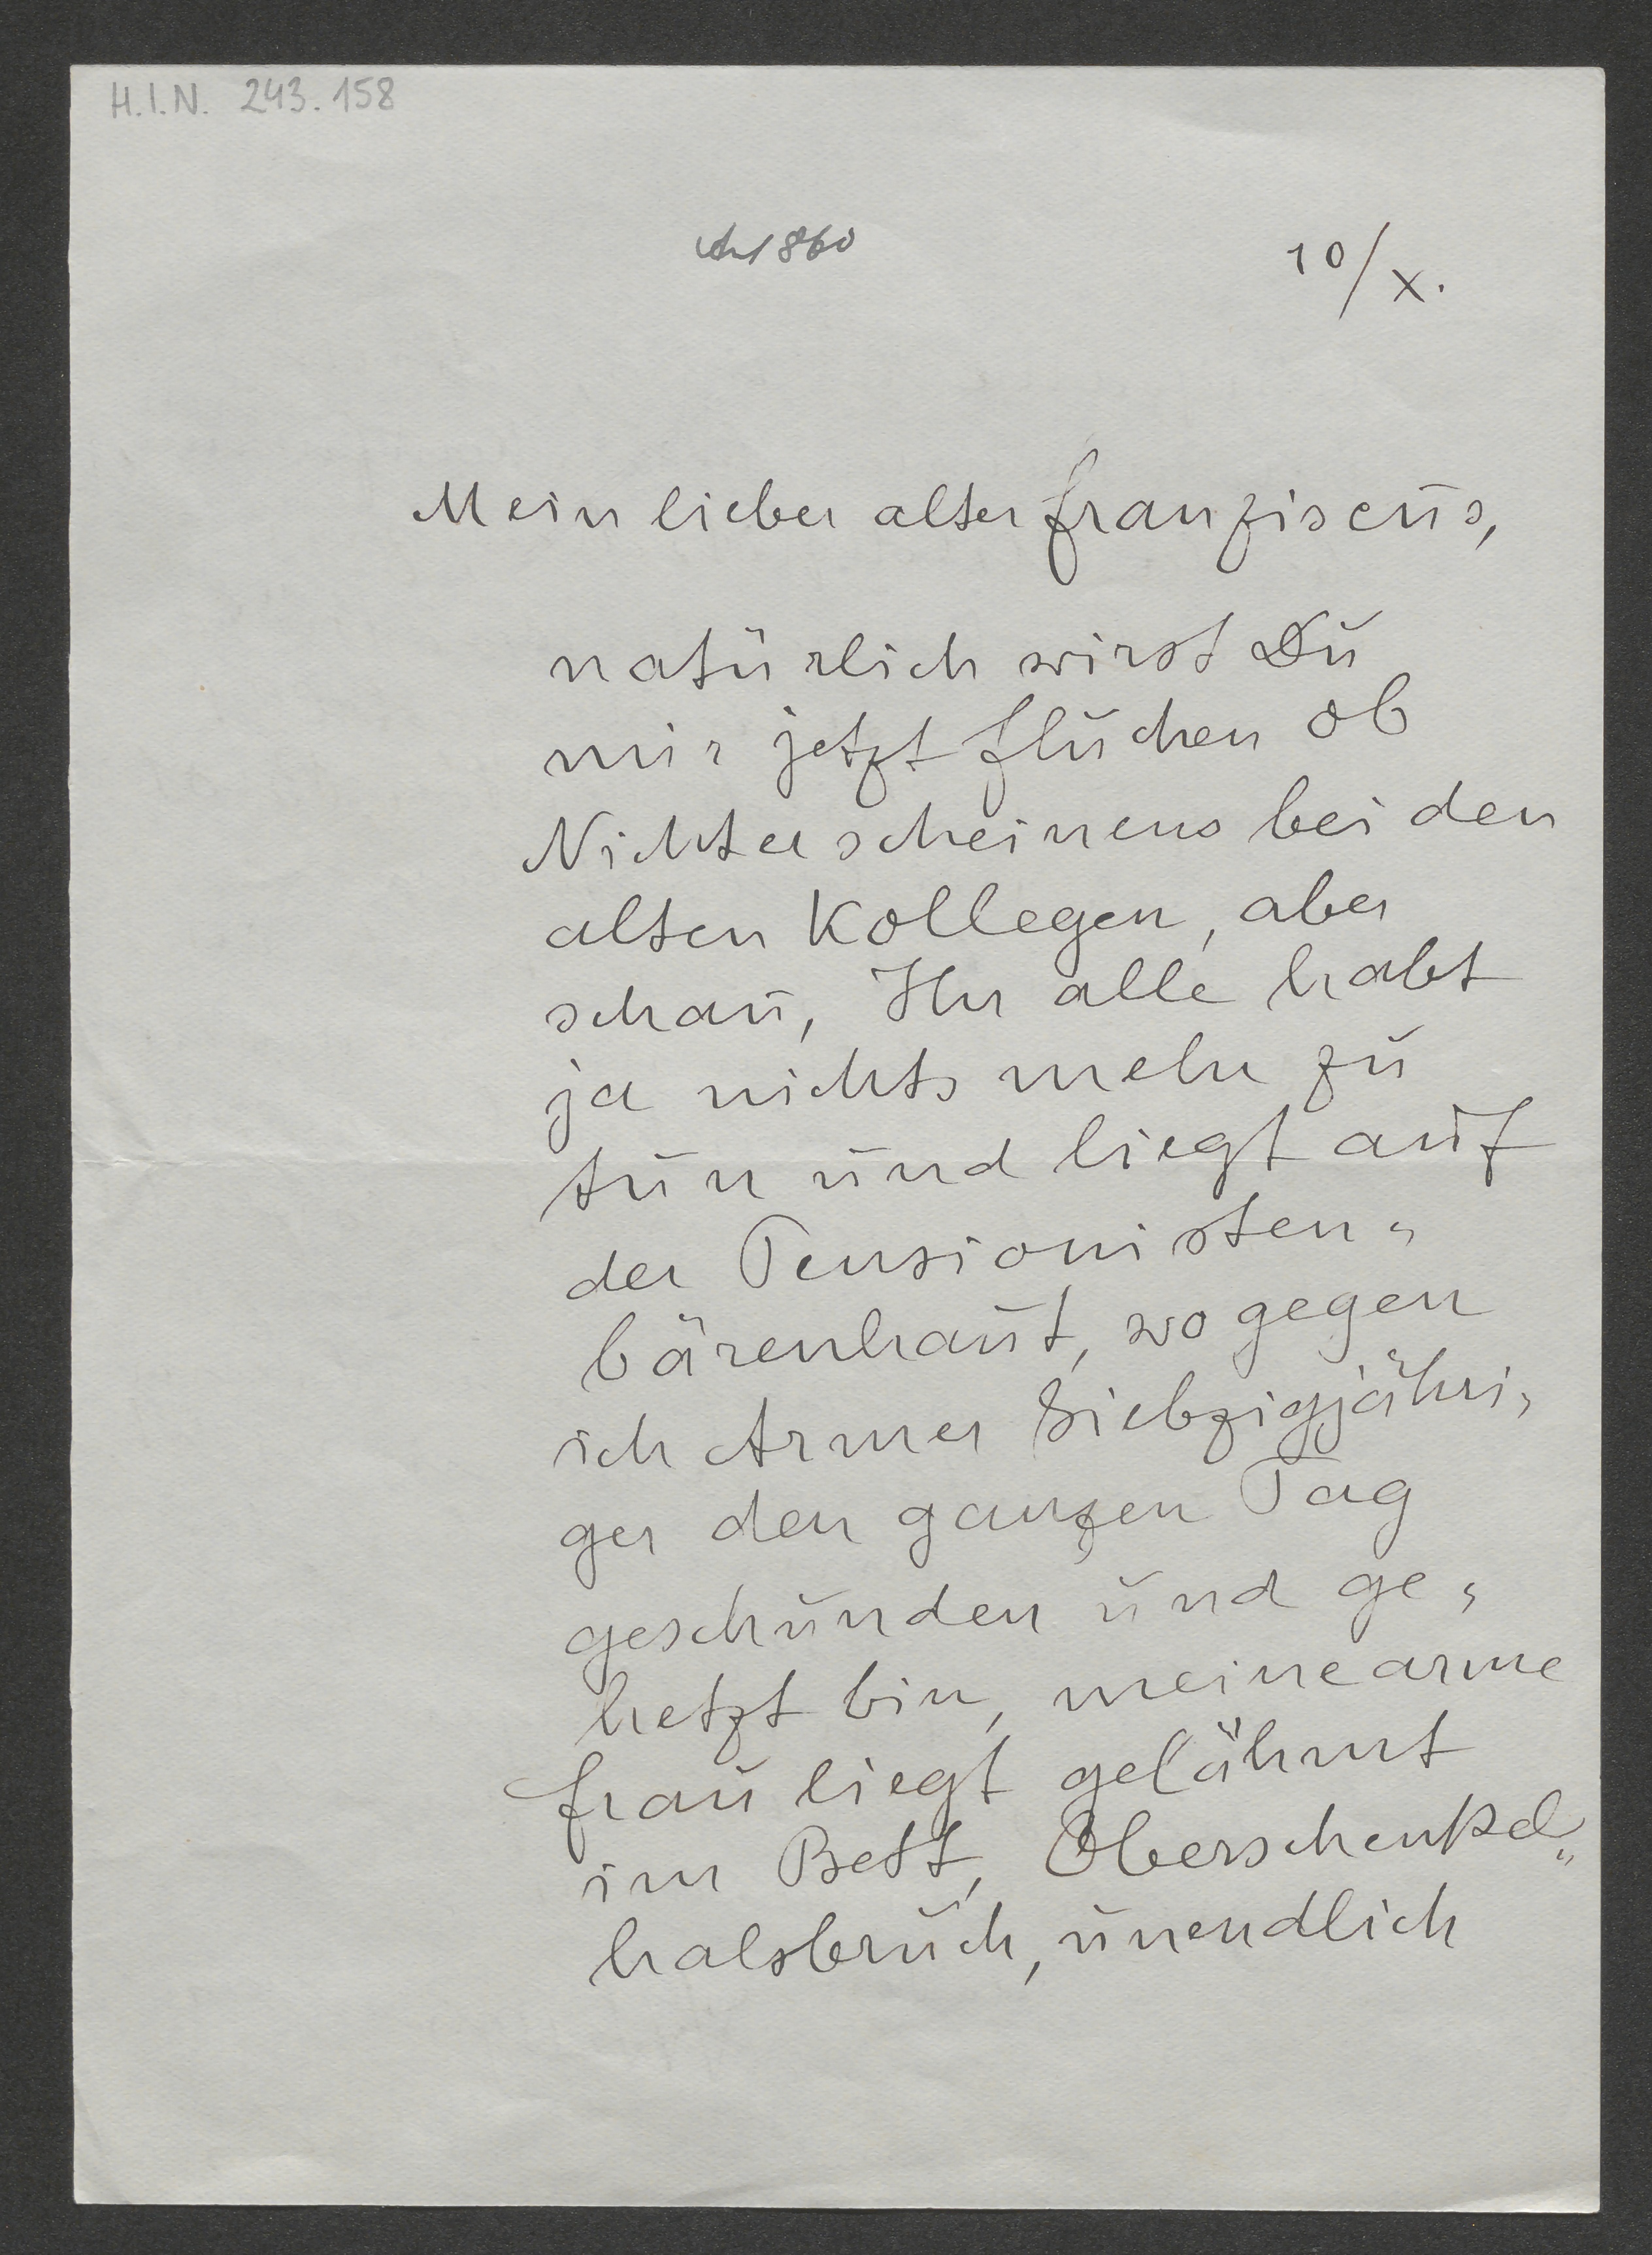 H.I.N. 243.158
10/X.
Mein lieber alter Franziscus,
natürlich wirst Du
mir jetzt fluchen ob
Nichterscheinens bei den
alten Kollegen, aber
schau, Ihr alle habt
ja nichts mehr zu
tun und liegt auf
der Pensionisten„
bärenhaut, wogegen
ich Armer Siebzigjähri„
ger den ganzen Tag
geschunden und ge„
hetzt bin, meine arme
Frau liegt gelähmt
im Bett, Oberschenkel„
halsbruch, unendlich